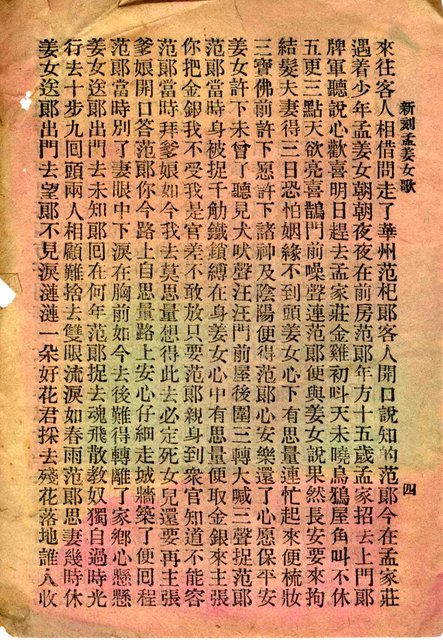 新刻孟姜女歌
四
來往客人相借問走了華州范杞郎客人開口說知的范郎今在孟家莊
遇着少年孟姜女朝朝夜夜在前房范郎年方十五歲孟家招去上門郎
牌軍聽說心歡喜明日趕去孟家莊金雞初呌天未曉烏鴉屋角叫不休
五更三點天欲亮喜鵲門前噪聲連范郎便與姜女說果然長安要來拘
結髮夫妻得三日恐怕姻緣不到頭姜女心下有思量連忙起來便梳妝
三寶佛前許下愿許下諸神及陰陽便得范郎心安樂還了心愿保平安
姜女許下未曾了聽兒犬吠聲汪汪門前屋後圍三轉大喊三聲捉范郎
范郎當時身被捉千觔鐵鎖縛在身姜女心中有思量便取金銀來主張
你把金銀我不受我是官差不敢放只要范郎親身到衆官知道不能容
范郎當時拜爹娘如今我去莫思量想得此去必定死女兒還要再主張
爹娘開口答范郎你今路上自思量路上安心仔細走城牆築了便回程
范郎當時別了妻眼中下淚在胸前如今去後難得轉離了家鄉心懸懸
姜女送郎出門去未知郎回在何年范郎捉去魂飛散教奴獨自過時光
行去十步九回頭兩人相顧難捨去雙眼流淚如春雨范郎思妻幾時休
姜女送郎出門去望郎不見淚漣漣一朵好花君採去殘花落地誰人收